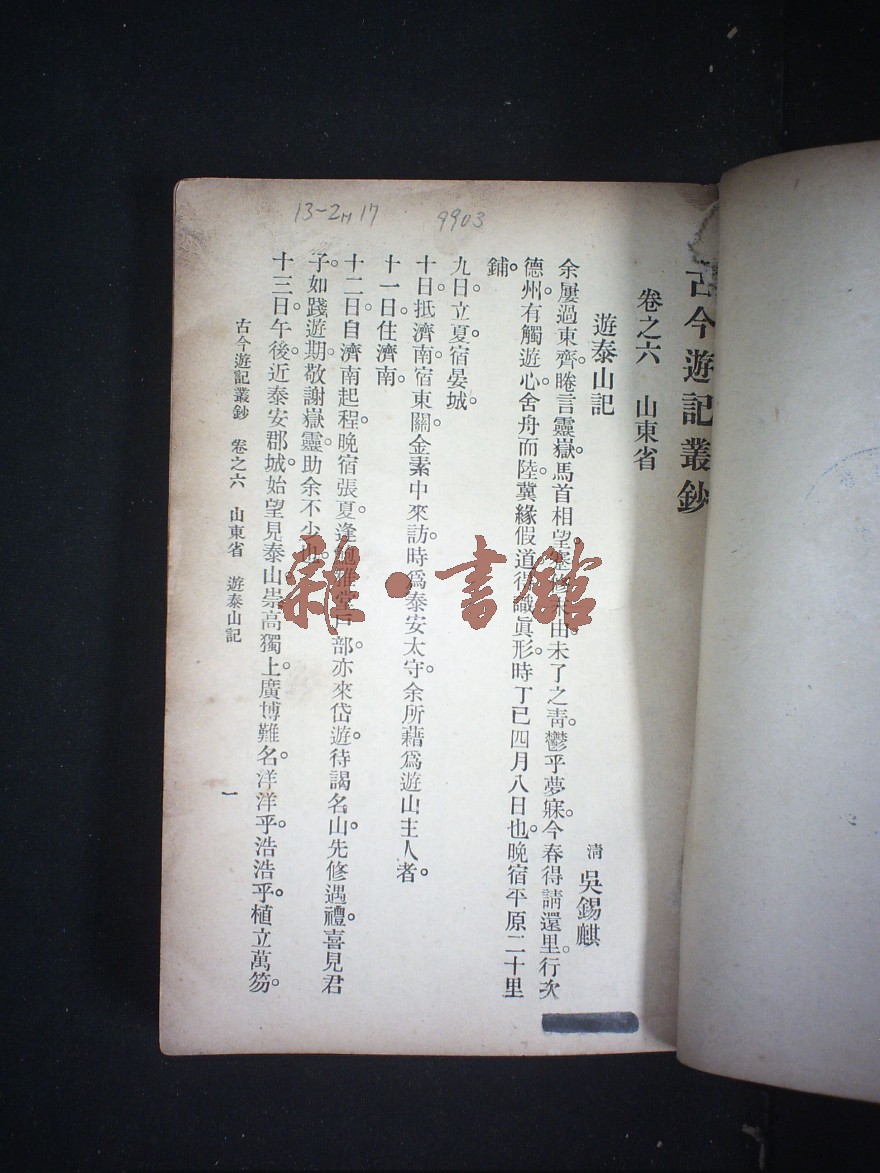 13-2H17 9903
古今遊記叢鈔
卷之六 山東省
遊泰山記
清 吳錫麒
余屢過東齊。睠言靈嶽。馬首相望。未由。未了之靑。鬱乎夢寐。今春得請還里。行次
德州。有觸遊心。舍舟而陸。冀緣假道。得識眞形。時丁巳四月八日也。晚宿平原二十里
鋪。
九日。立夏。宿晏城。
十日。抵濟南。宿東關。金素中來訪。時爲泰安太守。余所藉爲遊山主人者。
十一日。住濟南。
十二日。自濟南起程。晚宿張夏。逢戶部。亦來岱遊。待謁名山。先修遇禮。喜見君
子。如踐遊期。敬謝嶽靈。助余不少也。
十三日。午後近泰安郡城。始望見泰山。崇高獨上。廣博難名。洋洋乎。浩浩乎。植立萬笏。
古今遊記叢鈔 卷之六 山東省 遊泰山記
一
雜·書館